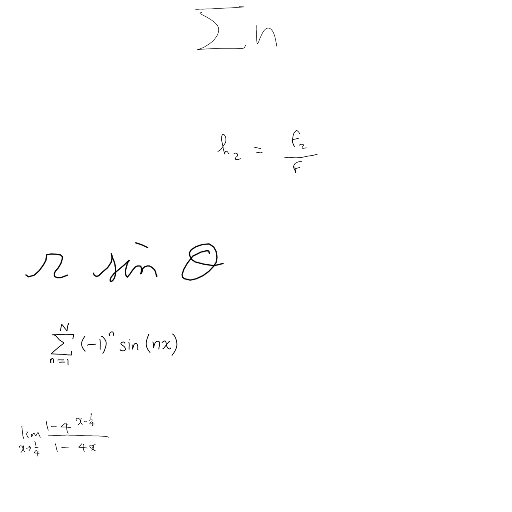 \sum n
h_2 = \frac{F_2}{F}
r \sin \theta
\sum_{n=1}^{N} (-1)^n \sin(nx)
\lim_{x \to \frac{1}{4}} \frac{1-4^{x-\frac{1}{4}}}{1-4x}